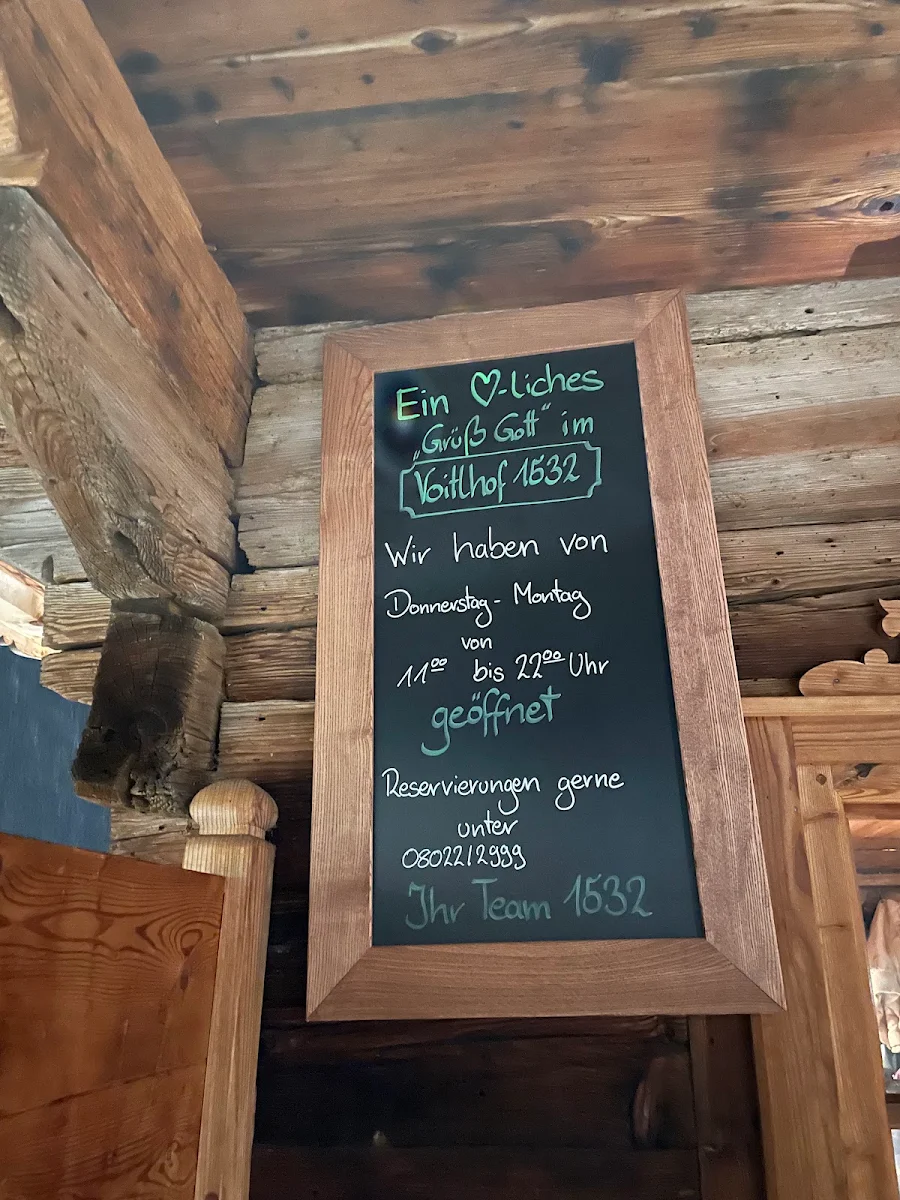 Ein ♡-liches
„Grüß Gott“ im
Voitlhof 1532
Wir haben von
Donnerstag - Montag
von
11⁰⁰ bis 22⁰⁰ Uhr
geöffnet
Reservierungen gerne
unter
08022/2999
Ihr Team 1532